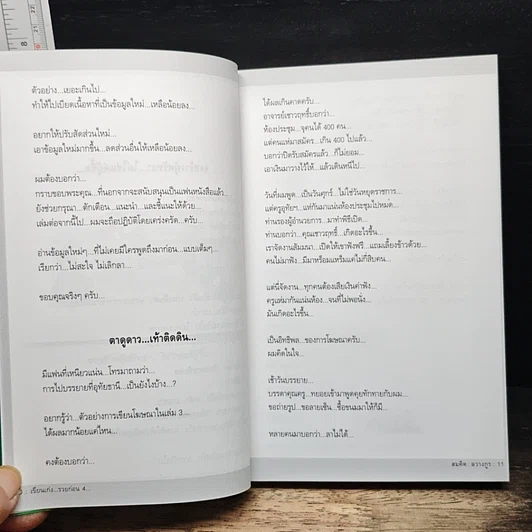 8
ตัวอย่าง...เยอะเกินไป...
ทำให้ไปเบียดเนื้อหาที่เป็นข้อมูลใหม่...เหลือน้อยลง...
อยากให้ปรับสัดส่วนใหม่...
เอาข้อมูลใหม่มากขึ้น...ลดส่วนอื่นให้เหลือน้อยลง...
ผมต้องบอกว่า...
กราบขอบพระคุณ...ที่นอกจากจะสนับสนุนเป็นแฟนหนังสือแล้ว...
ยังช่วยกรุณา...ตักเตือน...แนะนำ...และชี้แนะให้ด้วย...
เล่มต่อจากนี้ไป...ผมจะถือปฏิบัติโดยเคร่งครัด...ครับ...
อ่านข้อมูลใหม่ๆ...ที่ไม่เคยมีใครพูดถึงมาก่อน...แบบเต็มๆ...
เรียกว่า...ไม่สะใจ ไม่เลิกลา...
ขอบคุณจริงๆ ครับ...
ตาดูดาว...เท้าติดดิน...
มีแฟนที่เหนียวแน่น...โทรมาถามว่า...
การไปบรรยายที่อุทัยธานี...เป็นยังไงบ้าง...?
อยากรู้ว่า...ตัวอย่างการเขียนโฆษณาในเล่ม 3...
ได้ผลมากน้อยแค่ไหน...
คงต้องบอกว่า...
เรียนเก่ง...รวยก่อน 4...
ได้ผลเกินคาดครับ...
อาจารย์เชาวฤทธิ์บอกว่า...
ห้องประชุม...จุคนได้ 400 คน...
แต่คนแห่มาสมัคร...เกิน 400 ไปแล้ว...
บอกว่าปิดรับสมัครแล้ว...ก็ไม่ยอม...
เอาเงินมาวางไว้ให้...แล้วเดินหนีไป...
วันที่ผมพูด...เป็นวันศุกร์...ไม่ใช่วันหยุดราชการ...
แต่ครูอุทัยฯ...แห่กันมาแน่นห้องประชุมไปหมด...
ท่านรองผู้อำนวยการ...มาทำพิธีเปิด...
ท่านบอกว่า...คุณเชาวฤทธิ์...เกิดอะไรขึ้น...
เราจัดงานสัมมนา...เปิดให้เขาฟังฟรี...แถมเลี้ยงข้าวด้วย...
คนไม่มาฟัง...มีมาหร็อมแหร็มแค่ไม่กี่สิบคน...
แต่นี่จัดงาน...ทุกคนต้องเสียเงินค่าฟัง...
ครูแห่มากันแน่นห้อง...จนที่ไม่พอนั่ง...
มันเกิดอะไรขึ้น...
เป็นอิทธิพล...ของการโฆษณาครับ...
ผมคิดในใจ...
เช้าวันบรรยาย...
บรรดาคุณครู...ทยอยเข้ามาพูดคุยทักทายกับผม...
ขอถ่ายรูป...ขอลายเซ็น...ซื้อขนมมาให้ก็มี...
หลายคนมาบอกว่า...ลาไม่ได้...
สมคิด ลวางกูร... 11